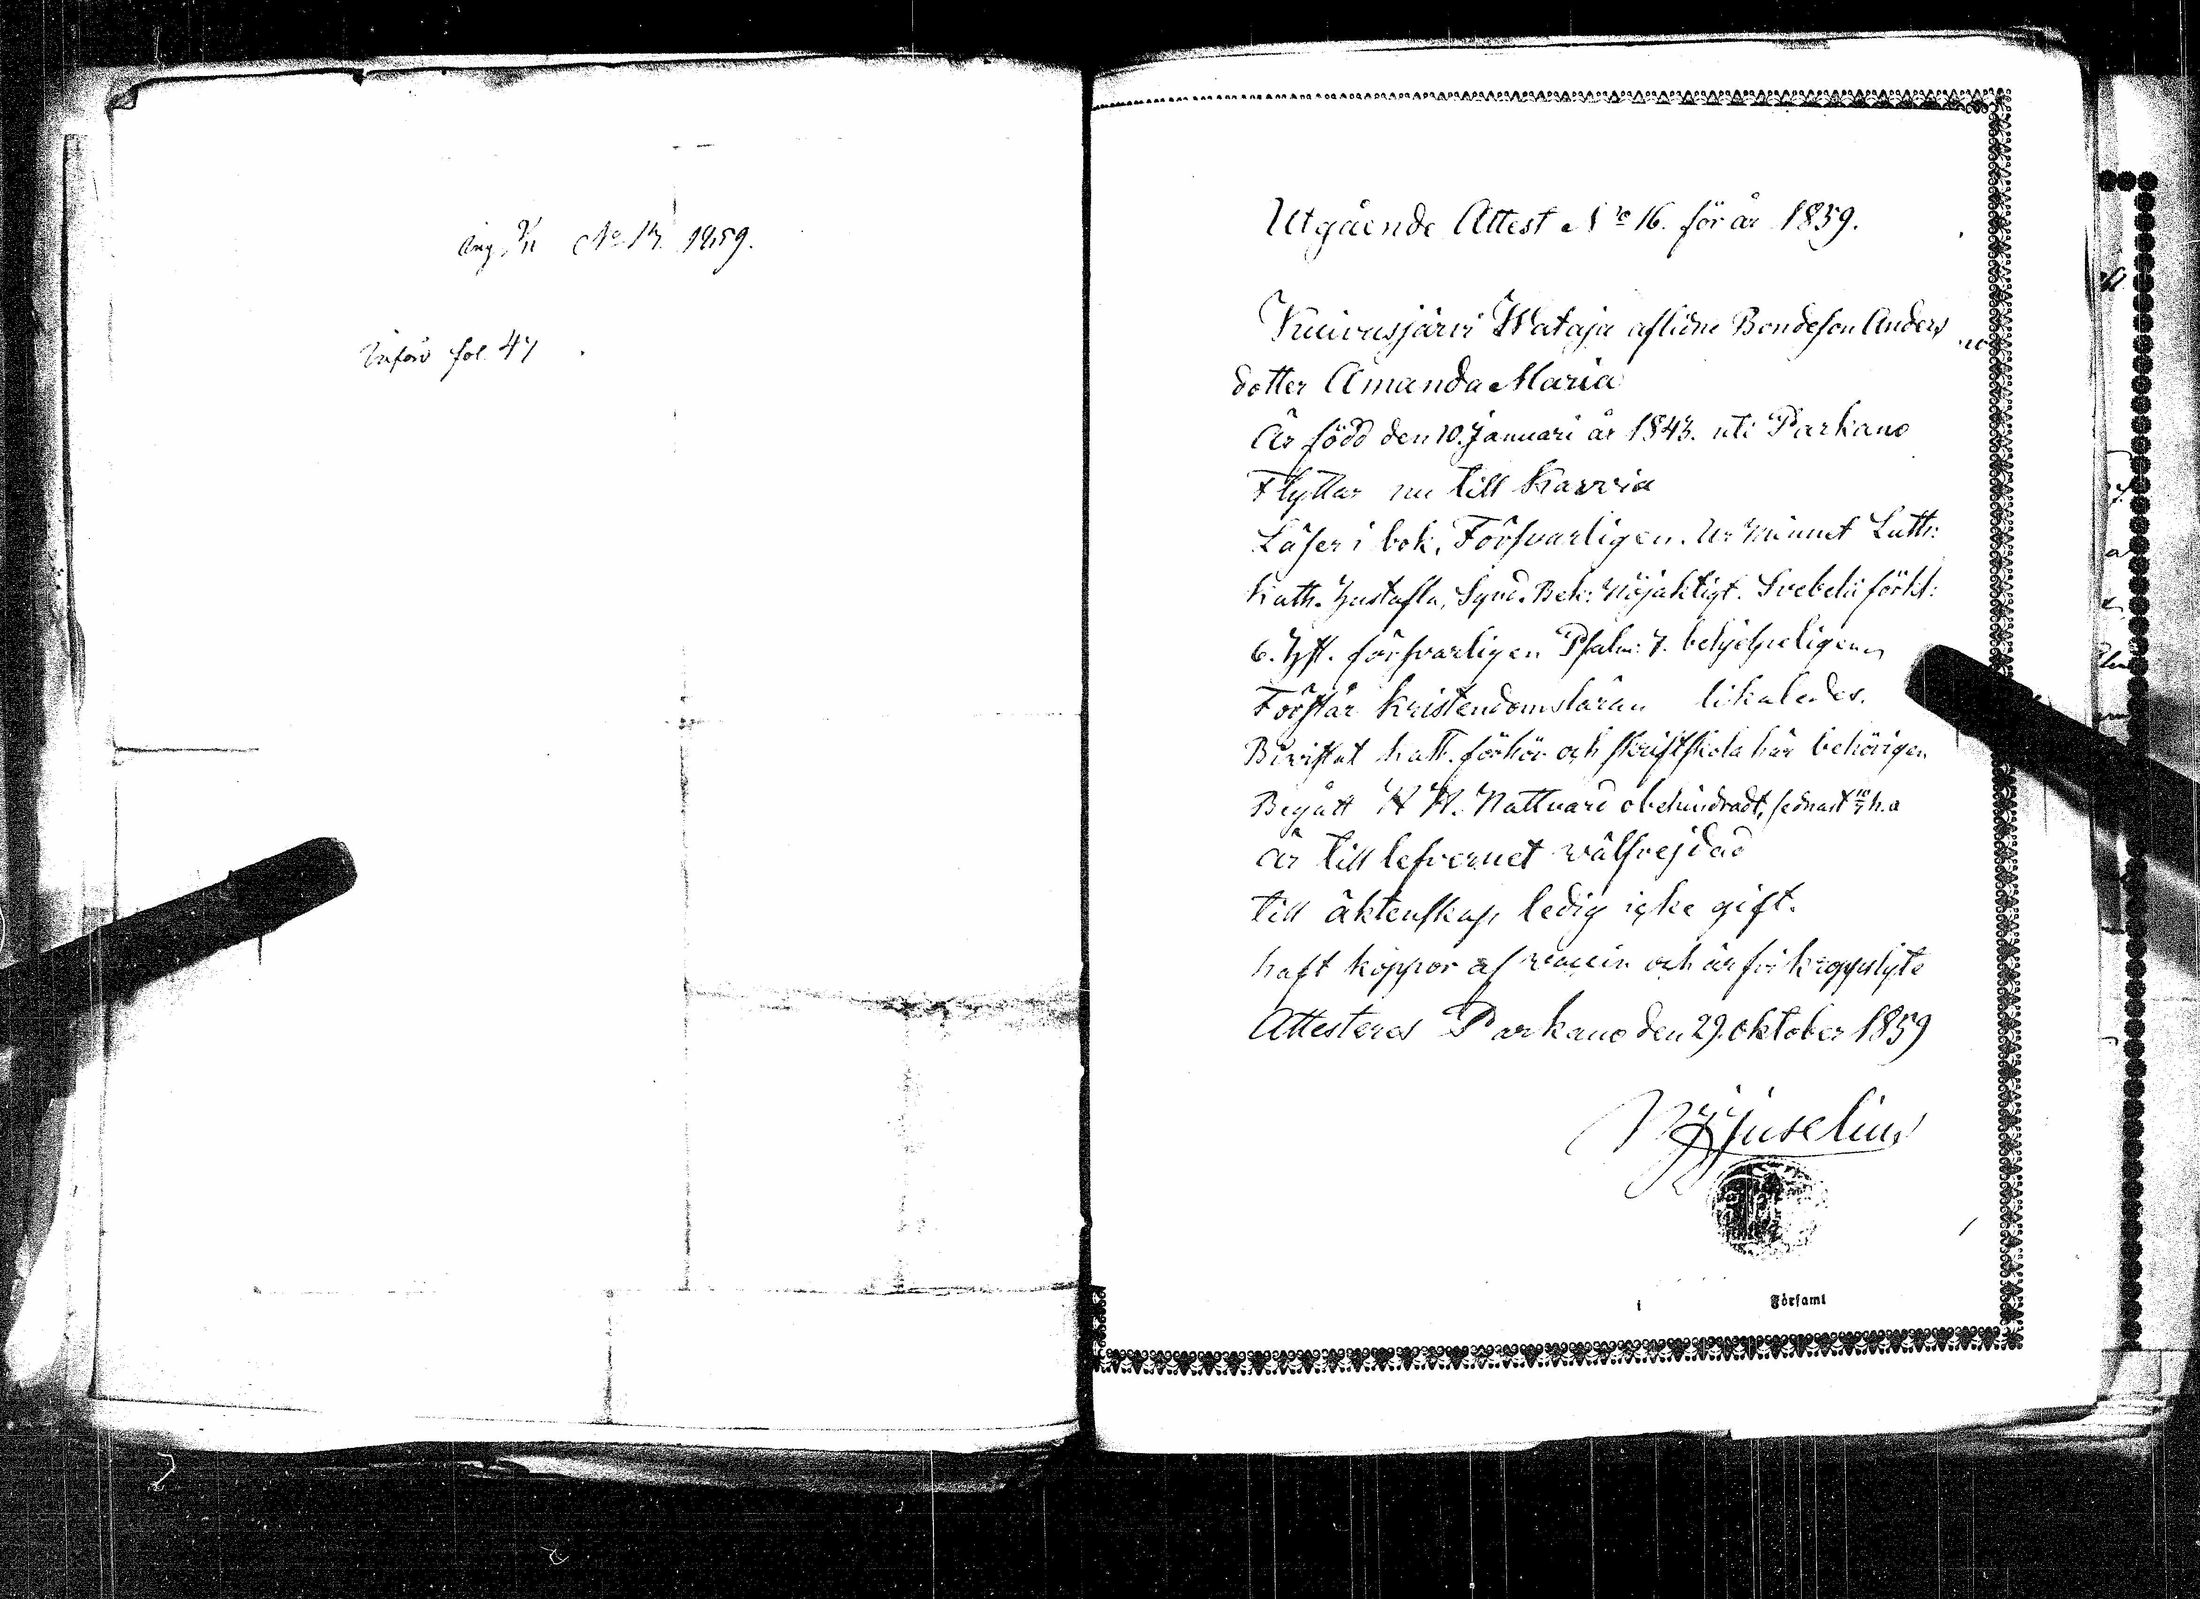 Ing. 5/11 No 13. 1859.
Införd fol. 47
Utgående Attest No 16. för år 1859.
Kuivasjärvi Wataja aflidne Bondeson Anders
dotter Amanda Maria
Är född den 10. Januari år 1843. uti Parkano
Flyttar nu till Karvia
Läser i bok, Försvarligen. Ur minnet Luth:
Kath. Hustafla, Symb. Bek: Nöjaktigt. Svebelii förkl:
6. Hft. försvarligen Psalm: 7. behjelpeligen
Förstår kristendomsläran likaledes.
Bivistat kath. förhör och skriftskola här behörigen
Begått H H. Nattvard obehindradt, sednast h.a
är till lefvernet välfrejdad
till äktenskap ledig icke gift.
haft koppor af vaccin och är fri kroppslyte
Attesteras Parkano den 29. oktober 1859
Juselius
i Församl